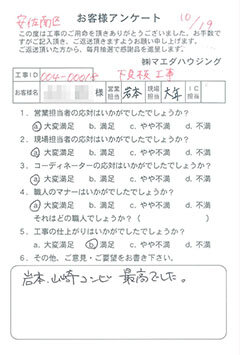 安佐南区
お客様アンケート
10/19
この度は工事のご用命を頂きありがとうございました。お手数で
すがご記入頂き、ご返送頂きますようお願い申し上げます。
ご返送頂いた方から、毎月抽選で感謝品を進呈します。
㈱マエダハウジング
工事ID 004-00018 下見板工事
お客様名 様 営業担当 岩本 現場担当 IC担当
1. 営業担当者の応対はいかがでしたでしょうか?
a. 大変満足 b. 満足 c. やや不満 d. 不満
2. 現場担当者の応対はいかがでしたでしょうか?
a. 大変満足 b. 満足 c. やや不満 d. 不満
3. コーディネーターの応対はいかがでしたでしょうか?
a. 大変満足 b. 満足 c. やや不満 d. 不満
4. 職人のマナーはいかがでしたでしょうか?
a. 大変満足 b. 満足 c. やや不満 d. 不満
それはどの職人でしょうか?( )
5. 工事の仕上がりはいかがでしたでしょうか?
a. 大変満足 b. 満足 c. やや不満 d. 不満
6. その他、ご意見・ご要望をお書き下さい。
岩本、山崎コンビ 最高でした。